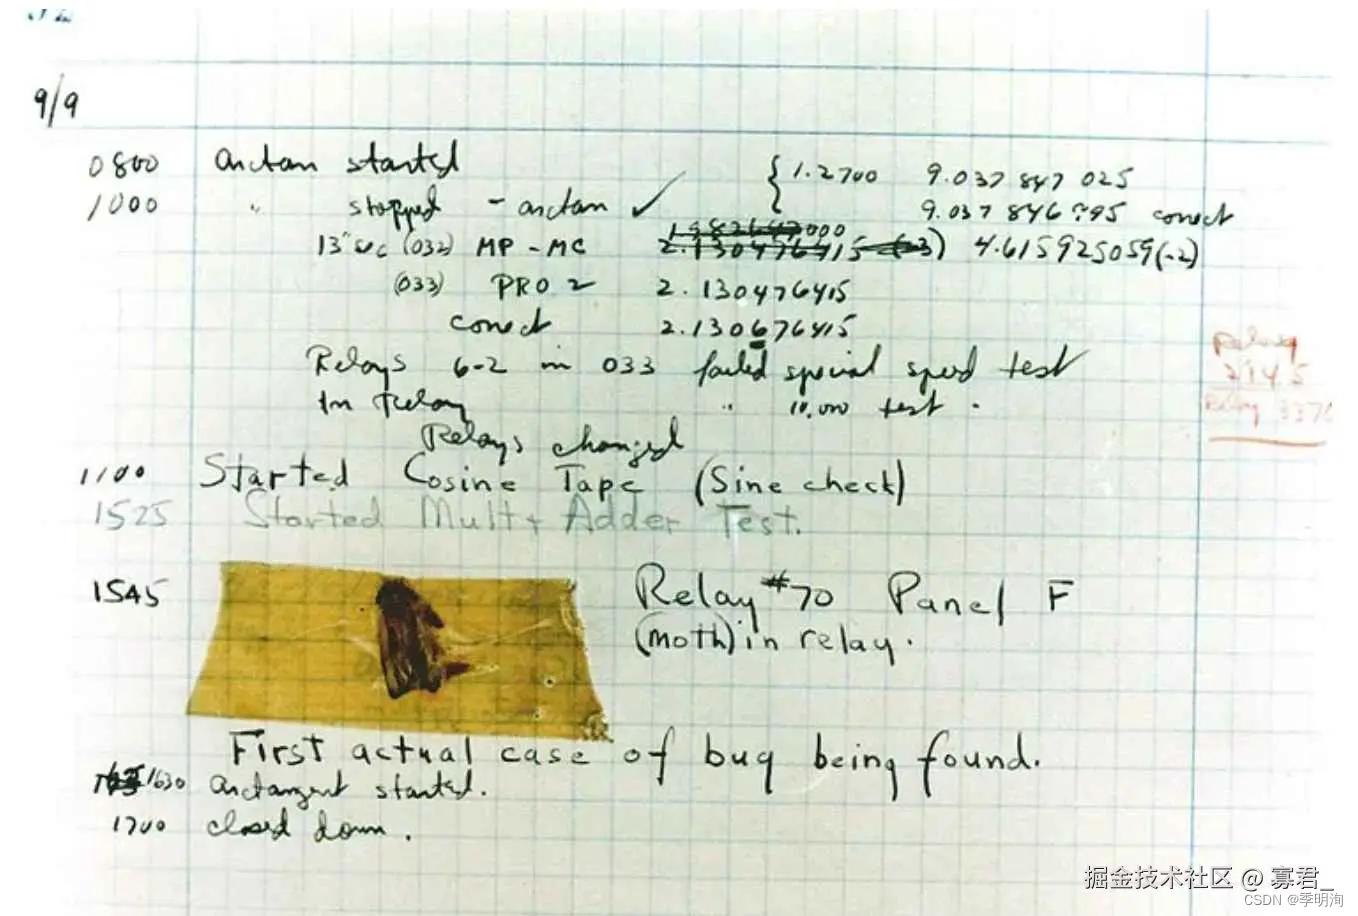 9/9
0800 arctan started { 1.2700 9.037 847 025
1000 " stopped - arctan ✓ 9.037 846 795 correct
000
13" (032) MP - MC 2.130476415 4.615925059(-2)
(033) PRO 2 2.130476415
correct 2.130676415
Relays 6-2 in 033 failed special speed test
In Relay " 10,000 test .
Relays changed
Relay
2145
Relay 337
1100 Started Cosine Tape (Sine check)
1525 Started Mult + Adder Test.
1545 Relay #70 Panel F
(moth) in relay.
First actual case of bug being found.
1630 arctangent started.
1700 closed down .
掘金技术社区 @ 寡君_
CSDN @季明洵